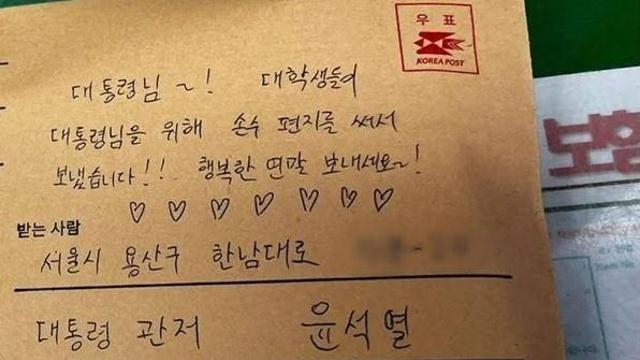 우 표
KOREA POST
대통령님~! 대학생들이
대통령님을 위해 손수 편지를 써서
보냈습니다!! 행복한 연말 보내세요~!
♡ ♡ ♡ ♡ ♡ ♡ ♡
받는 사람
서울시 용산구 한남대로
대통령 관저 윤석열
보험